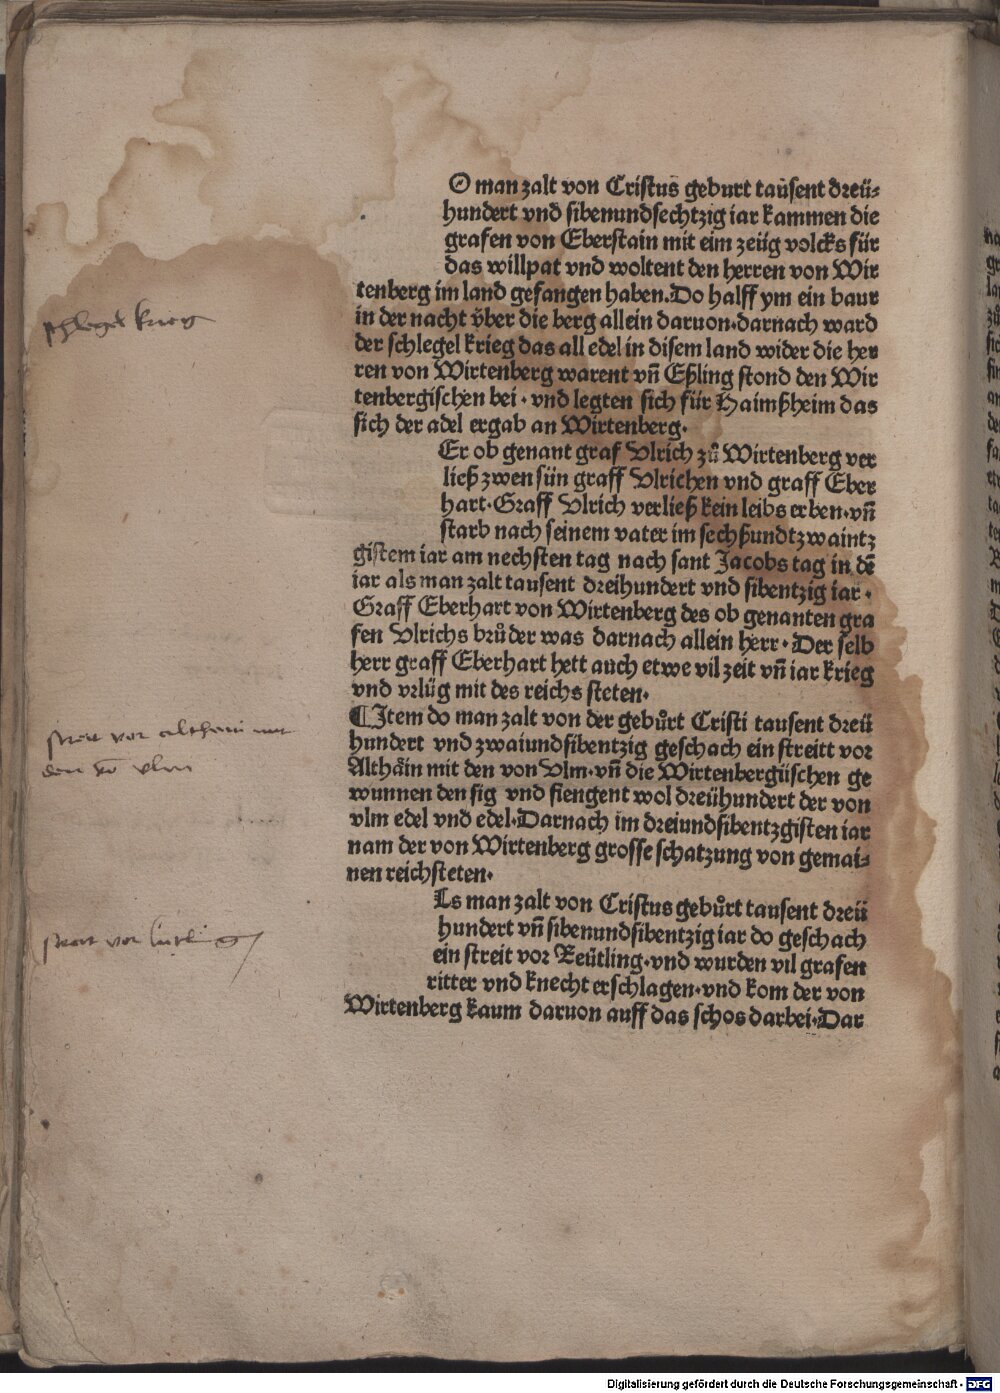 O man zalt von Cristus geburt tausent dreü-
hundert vnd sibenundsechtzig iar kammen die
grafen von Eberstain mit eim zeüg volcks für
das willpat vnd woltent den herren von Wir
tenberg im land gefangen haben. Do halff ym ein baur
in der nacht v̈ber die berg allein daruon. darnach ward
der schlegel krieg das all edel in disem land wider die her
ren von Wirtenberg warent vn̄ Eßling stond den Wir
tenbergischen bei · vnd legten sich für Haimßheim das
sich der adel ergab an Wirtenberg·
Er ob genant graf Vlrich zů Wirtenberg ver
ließ zwen sün graff Vlrichen vnd graff Eber
hart· Graff Vlrich verließ kein leibs erben· vn̄
starb nach seinem vater im sechßundtzwaintz
gistem iar am nechsten tag nach sant Jacobs tag in dē
iar als man zalt tausent dreihundert vnd sibentzig iar ·
Graff Eberhart von Wirtenberg des ob genanten gra
fen Vlrichs brůder was darnach allein herr · Der selb
herr graff Eberhart hett auch etwe vil zeit vn̄ iar krieg
vnd vrlüg mit des reichs steten·
¶ Item do man zalt von der gebůrt Cristi tausent dreü
hundert vnd zwaiundsibentzig geschach ein streitt vor
Althäin mit den von Vlm· vn̄ die Wirtenbergüschen ge
wunnen den sig vnd fiengent wol dreühundert der von
vlm edel vnd edel· Darnach im dreiundsibentzgisten iar
nam der von Wirtenberg grosse schatzung von gemai-
nen reichsteten·
Ls man zalt von Cristus gebůrt tausent dreü
hundert vn̄ sibenundsibentzig iar do geschach
ein streit vor Reütling· vnd wurden vil grafen
ritter vnd knecht erschlagen· vnd kom der von
Wirtenberg kaum daruon auff das schos darbei· Dar
schlegel krieg
streit vor althain mit
den vō vlm
streit vor
Digitalisierung gefördert durch die Deutsche Forschungsgemeinschaft - DFG